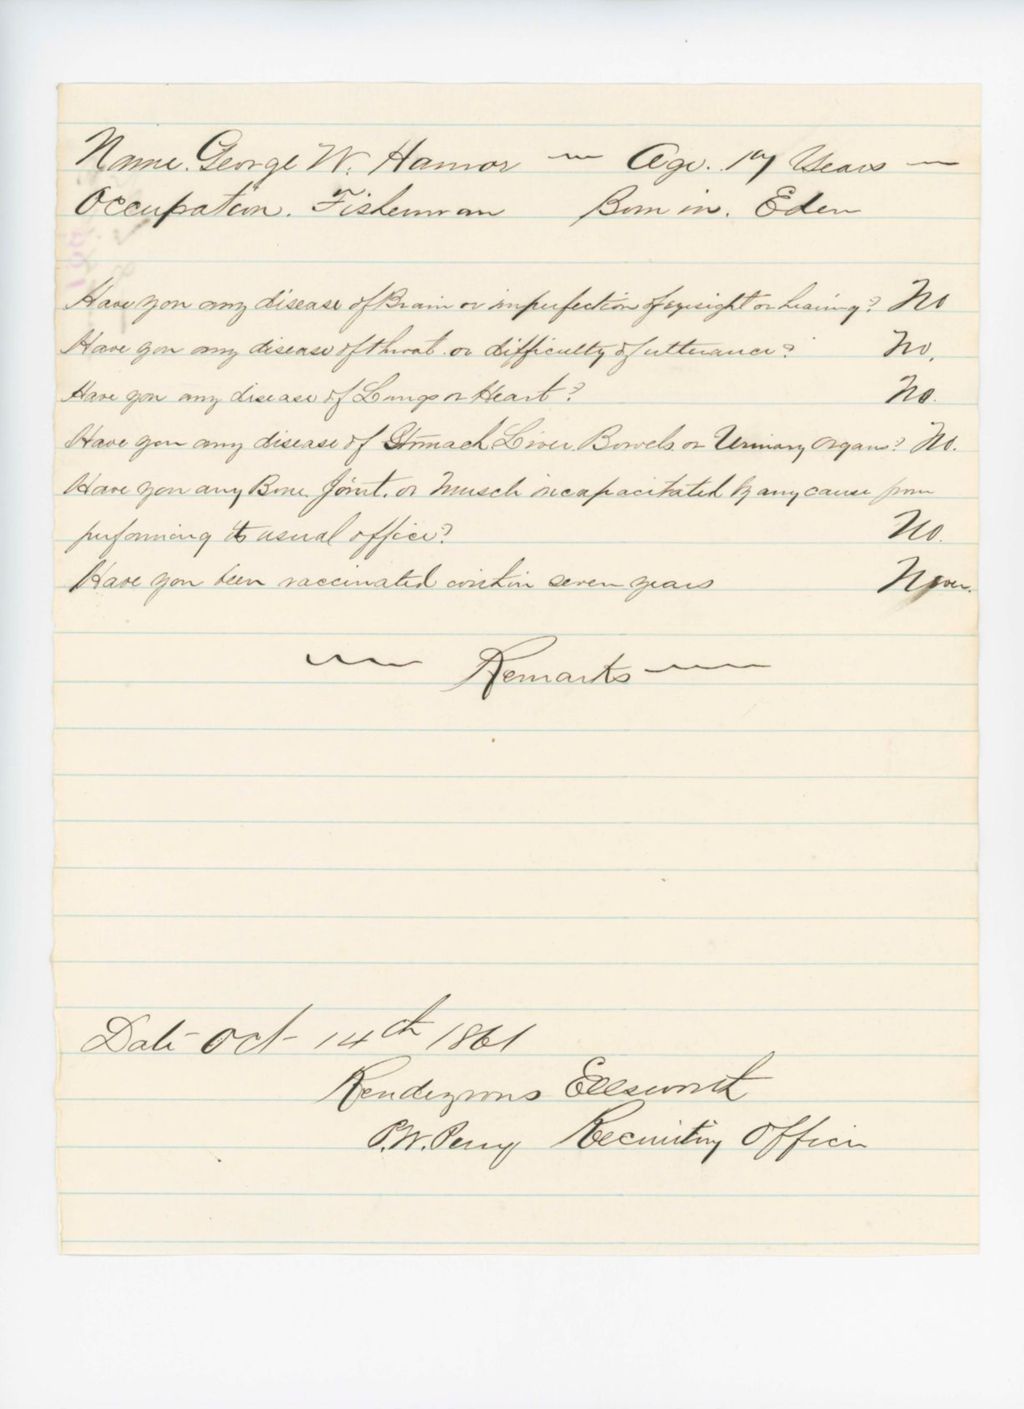 Name. George W. Hamor — Age. 19 Years —
Occupation. Fisherman Born in. Eden
Have you any disease of Brain or imperfection of eyesight or hearing? No
Have you any disease of throat or difficulty of utterance? No.
Have you any disease of Lungs or Heart? No.
Have you any disease of Stomach Liver Bowels or Urinary organs? No.
Have you any Bone, Joint, or Muscle incapacitated by any cause from
performing its usual office? No.
Have you been vaccinated within seven years Never.
— Remarks —
Date Oct 14th 1861
Rendezvous Ellsworth
P.W. Perry Recruiting Officer